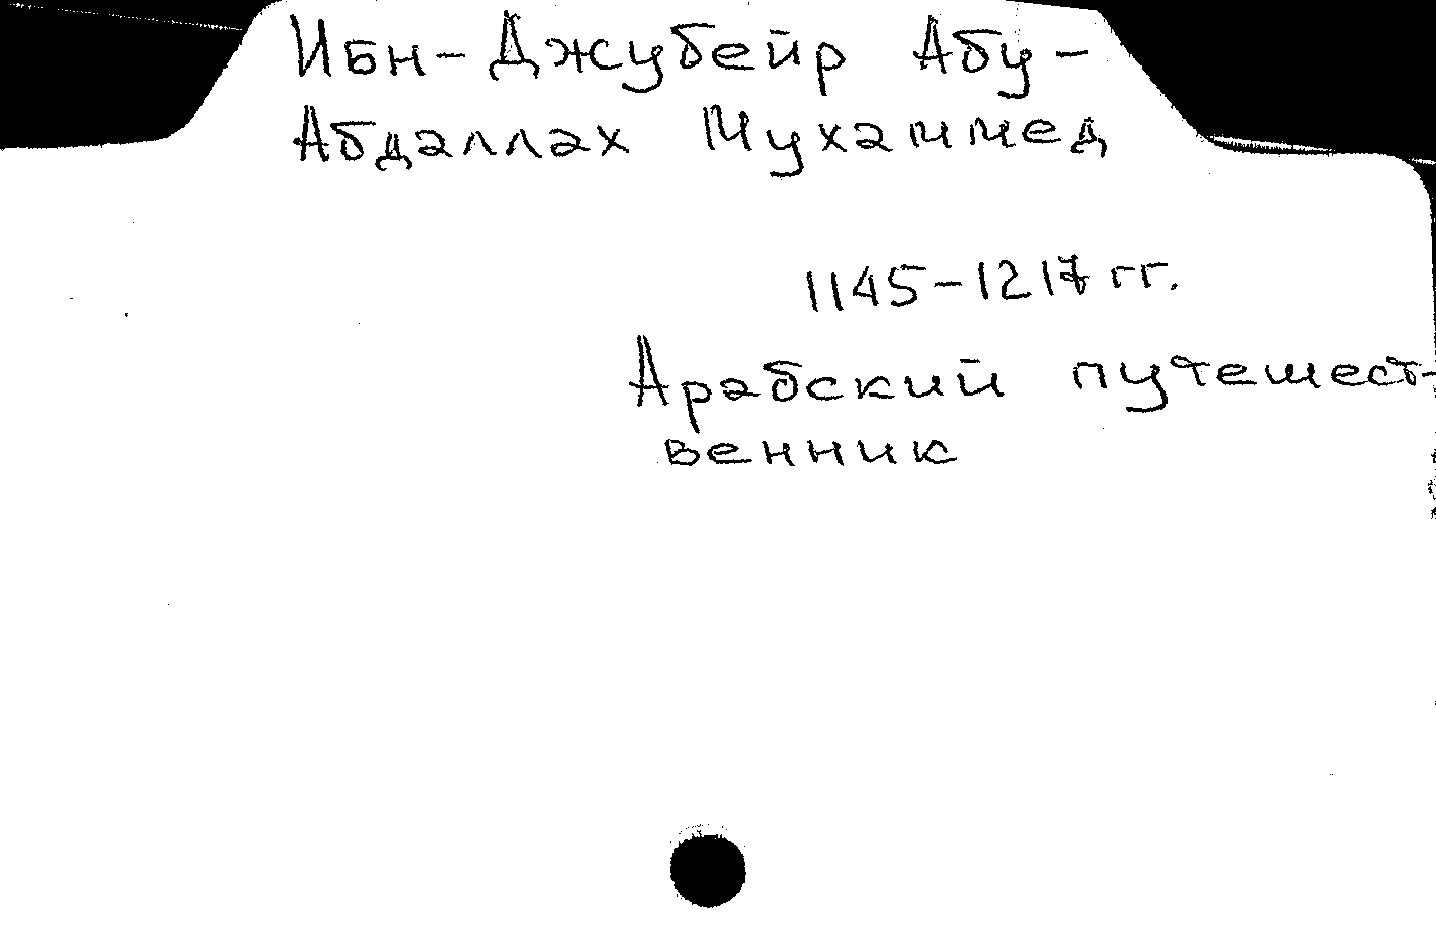 Ибн-Джубейр Абу-
Абдаллах Мухаммед
1145-1217 гг.
Арабский путешест-
венник